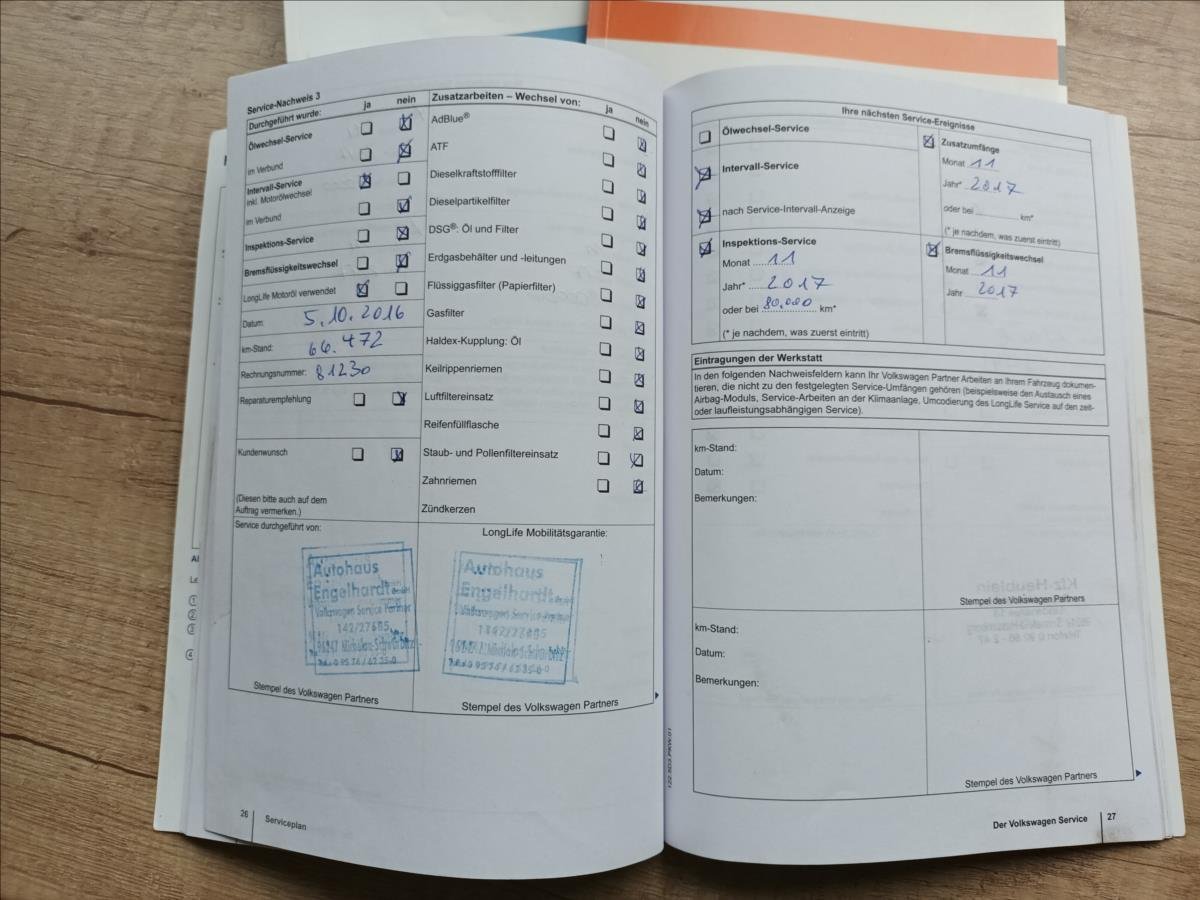 Service-Nachweis 3
Durchgeführt wurde: ja nein
Ölwechsel-Service
im Verbund
Intervall-Service
inkl. Motorölwechsel
im Verbund
Inspektions-Service
Bremsflüssigkeitswechsel
LongLife Motoröl verwendet
Datum: 5.10.2016
km-Stand: 66.472
Rechnungsnummer: 81230
Reparaturempfehlung
Kundenwunsch
(Diesen bitte auch auf dem
Auftrag vermerken.)
Service durchgeführt von:
Autohaus
Engelhardt
Volkswagen Service Partner
142/27685
Stempel des Volkswagen Partners
Zusatzarbeiten – Wechsel von: ja nein
AdBlue®
ATF
Dieselkraftstofffilter
Dieselpartikelfilter
DSG®: Öl und Filter
Erdgasbehälter und -leitungen
Flüssiggasfilter (Papierfilter)
Gasfilter
Haldex-Kupplung: Öl
Keilrippenriemen
Luftfiltereinsatz
Reifenfüllflasche
Staub- und Pollenfiltereinsatz
Zahnriemen
Zündkerzen
LongLife Mobilitätsgarantie:
Autohaus
Engelhardt
Volkswagen Service Partner
Stempel des Volkswagen Partners
26 Serviceplan
Ihre nächsten Service-Ereignisse
Ölwechsel-Service
Intervall-Service
nach Service-Intervall-Anzeige
Inspektions-Service
Monat 11
Jahr* 2017
oder bei 80.000 km*
(* je nachdem, was zuerst eintritt)
Zusatzumfänge
Monat 11
Jahr* 2017
oder bei km*
(* je nachdem, was zuerst eintritt)
Bremsflüssigkeitswechsel
Monat 11
Jahr 2017
Eintragungen der Werkstatt
In den folgenden Nachweisfeldern kann Ihr Volkswagen Partner Arbeiten an Ihrem Fahrzeug dokumen-
tieren, die nicht zu den festgelegten Service-Umfängen gehören (beispielsweise den Austausch eines
Airbag-Moduls, Service-Arbeiten an der Klimaanlage, Umcodierung des LongLife Service auf den zeit-
oder laufleistungsabhängigen Service).
km-Stand:
Datum:
Bemerkungen:
Stempel des Volkswagen Partners
km-Stand:
Datum:
Bemerkungen:
Stempel des Volkswagen Partners
Der Volkswagen Service 27